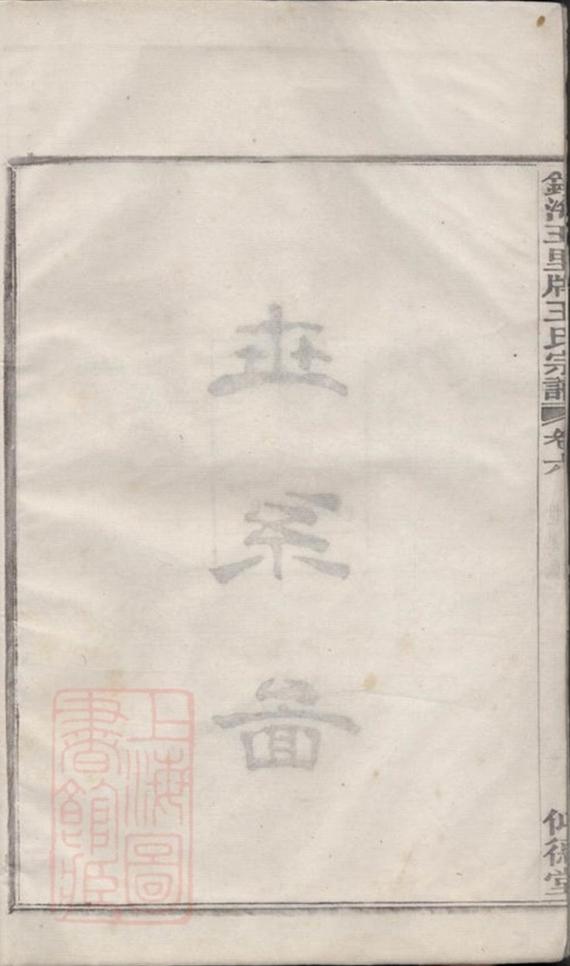 鎮海王里牌王氏宗譜 卷六
德堂
世系圖
上海圖
書館藏